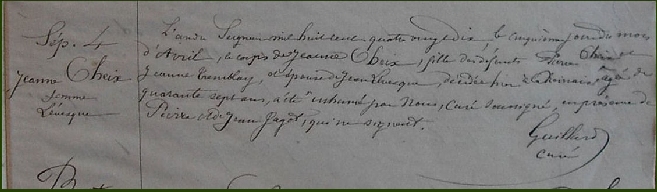 Sép. 4
Jeanne Cheix
femme
Lévêque
L'an du Seigneur mil huit cent quatre vingt dix, le cinquième jour du mois
d'Avril, le corps de Jeanne Cheix, fille des défunts Pierre Cheix et
Jeanne, épouse de Jean Lévêque décédée hier, âgée de
quarante sept ans, a été inhumé par Nous, Curé soussigné, en présence de
Pierre et de Jean Fagot, qui ne signent.
Guillard
curé